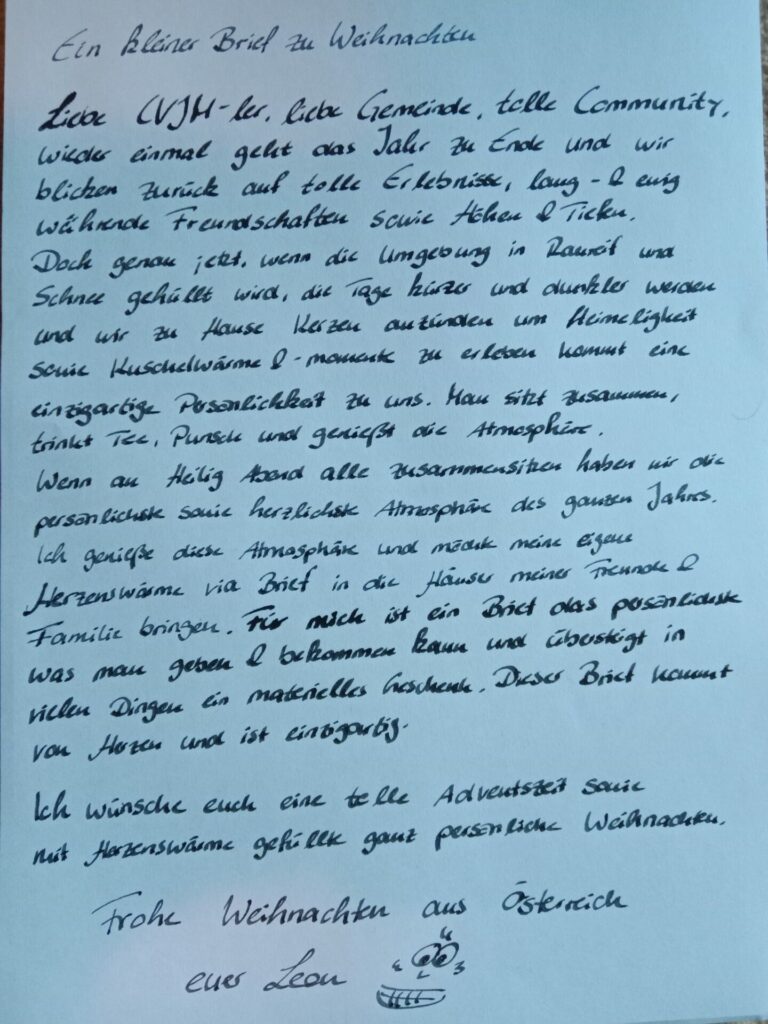 Ein kleiner Brief zu Weihnachten
Liebe CVJM-ler, liebe Gemeinde, tolle Community,
wieder einmal geht das Jahr zu Ende und wir
blicken zurück auf tolle Erlebnisse, lang- & ewig
währende Freundschaften sowie Höhen & Tiefen.
Doch genau jetzt, wenn die Umgebung in Raureif und
Schnee gehüllt wird, die Tage kürzer und dunkler werden
und wir zu Hause Kerzen anzünden um Heimeligkeit
sowie Kuschelwärme & -momente zu erleben kommt eine
einzigartige Persönlichkeit zu uns. Man sitzt zusammen,
trinkt Tee, Punsch und genießt die Atmosphäre.
Wenn an Heilig Abend alle zusammensitzen haben wir die
persönlichste sowie herzlichste Atmosphäre des ganzen Jahres.
Ich genieße diese Atmosphäre und möchte meine eigene
Herzenswärme via Brief in die Häuser meiner Freunde &
Familie bringen. Für mich ist ein Brief das persönlichste
was man geben & bekommen kann und übersteigt in
vielen Dingen ein materielles Geschenk. Dieser Brief kommt
von Herzen und ist einzigartig.
Ich wünsche euch eine tolle Adventszeit sowie
mit Herzenswärme gefüllte ganz persönliche Weihnachten.
Frohe Weihnachten aus Österreich
euer Leon